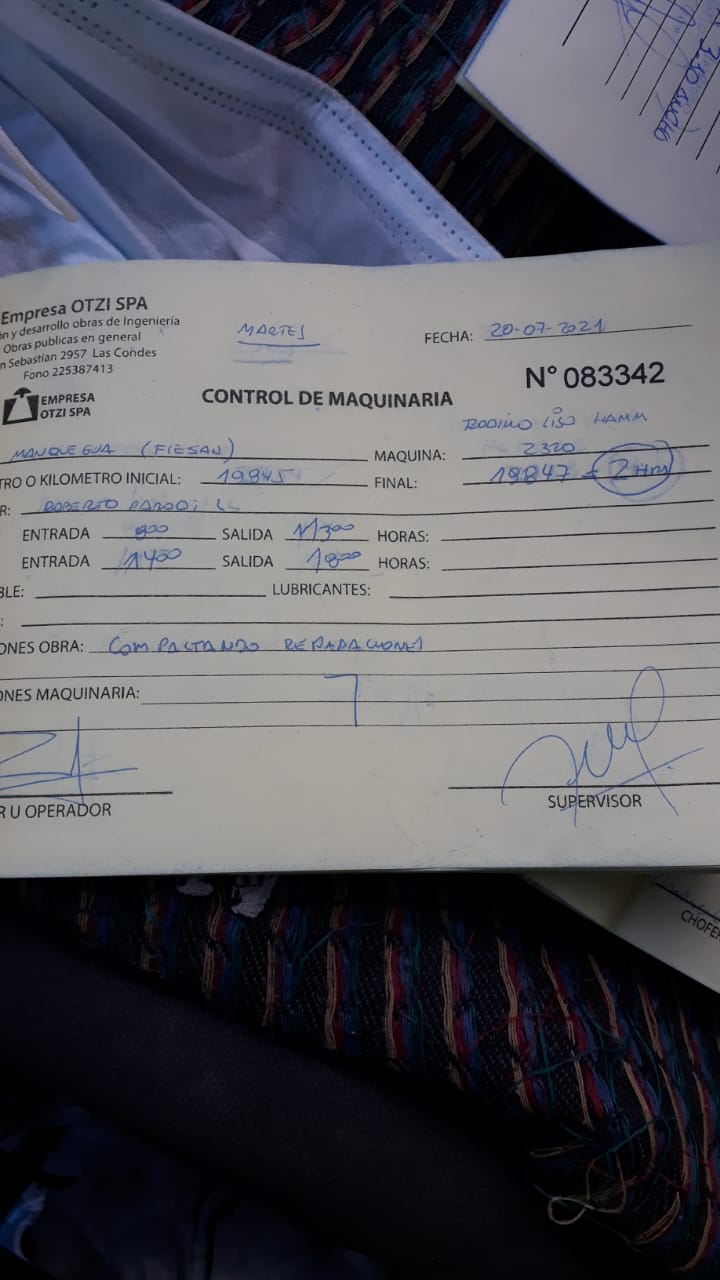 3:30 
Empresa OTZI SPA
ón y desarrollo obras de Ingeniería
Obras publicas en general
n Sebastian 2957 Las Condes
Fono 225387413
EMPRESA
OTZI SPA
MARTES
FECHA: 20-07-2021
N° 083342
CONTROL DE MAQUINARIA
RODILLO LISO HAMM
MANQUEGUA (FLESAN) MAQUINA: 2320
TRO O KILOMETRO INICIAL: 19845 FINAL: 19847 = 2 Hrs
R: ROBERTO PARODI
ENTRADA 800 SALIDA 1300 HORAS:
ENTRADA 1400 SALIDA 1800 HORAS:
BLE: LUBRICANTES:
:
ONES OBRA: COMPACTANDO REPARACIONES
ONES MAQUINARIA:
R U OPERADOR
SUPERVISOR
CHOFE